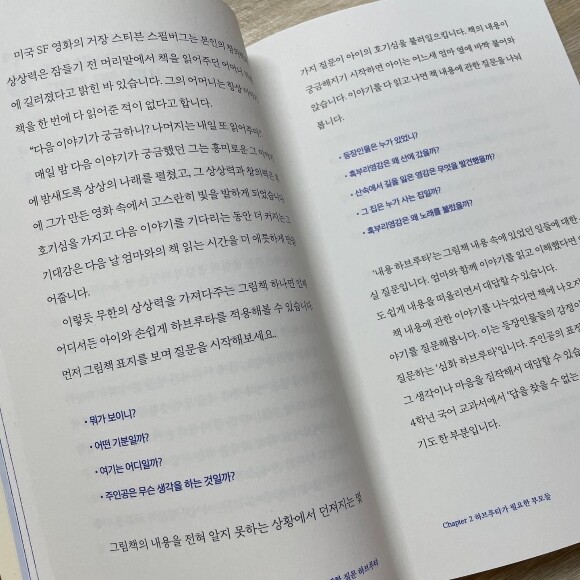 미국 SF 영화의 거장 스티븐 스필버그는 본인의
상상력은 잠들기 전 머리맡에서 책을 읽어주던 어머니
에 길러졌다고 밝힌 바 있습니다. 그의 어머니는 항상
책을 한 번에 다 읽어준 적이 없다고 합니다.
"다음 이야기가 궁금하니? 나머지는 내일 또 읽어주마."
매일 밤 다음 이야기가 궁금했던 그는 흥미로운 그
에 밤새도록 상상의 나래를 펼쳤고, 그 상상력과 창의력은
에 그가 만든 영화 속에서 고스란히 빛을 발하게 되었습니다
호기심을 가지고 다음 이야기를 기다리는 동안 더 커지는 그
기대감은 다음 날 엄마와의 책 읽는 시간을 더 애틋하게 만들
어줍니다.
이렇듯 무한의 상상력을 가져다주는 그림책 하나면 언제
어디서든 아이와 손쉽게 하브루타를 적용해볼 수 있습니다.
먼저 그림책 표지를 보며 질문을 시작해보세요.
• 뭐가 보이니?
• 어떤 기분일까?
• 여기는 어디일까?
• 주인공은 무슨 생각을 하는 것일까?
그림책의 내용을 전혀 알지 못하는 상황에서 던져지는 몇
질문 하브루타
가지 질문이 아이의 호기심을 불러일으킵니다. 책의 내용이
궁금해지기 시작하면 아이는 어느새 엄마 옆에 바짝 붙어와
앉습니다. 이야기를 다 읽고 나면 책 내용에 관한 질문을 나눠
봅니다.
• 등장인물은 누가 있었니?
• 혹부리영감은 왜 산에 갔을까?
• 산속에서 길을 잃은 영감은 무엇을 발견했을까?
• 그 집은 누가 사는 집일까?
• 혹부리영감은 왜 노래를 불렀을까?
'내용 하브루타'는 그림책 내용 속에 있었던 일들에 대한
실 질문입니다. 엄마와 함께 이야기를 읽고 이해했다면
도 쉽게 내용을 떠올리면서 대답할 수 있습니다.
책 내용에 관한 이야기를 나누었다면 책에 나오지
야기를 질문해봅니다. 이는 등장인물들의 감정이
질문하는 '심화 하브루타'입니다. 주인공의 표정
그 생각이나 마음을 짐작해서 대답할 수 있습
4학년 국어 교과서에서 '답을 찾을 수 없는
기도 한 부분입니다.
Chapter 2 하브루타가 필요한 부모들